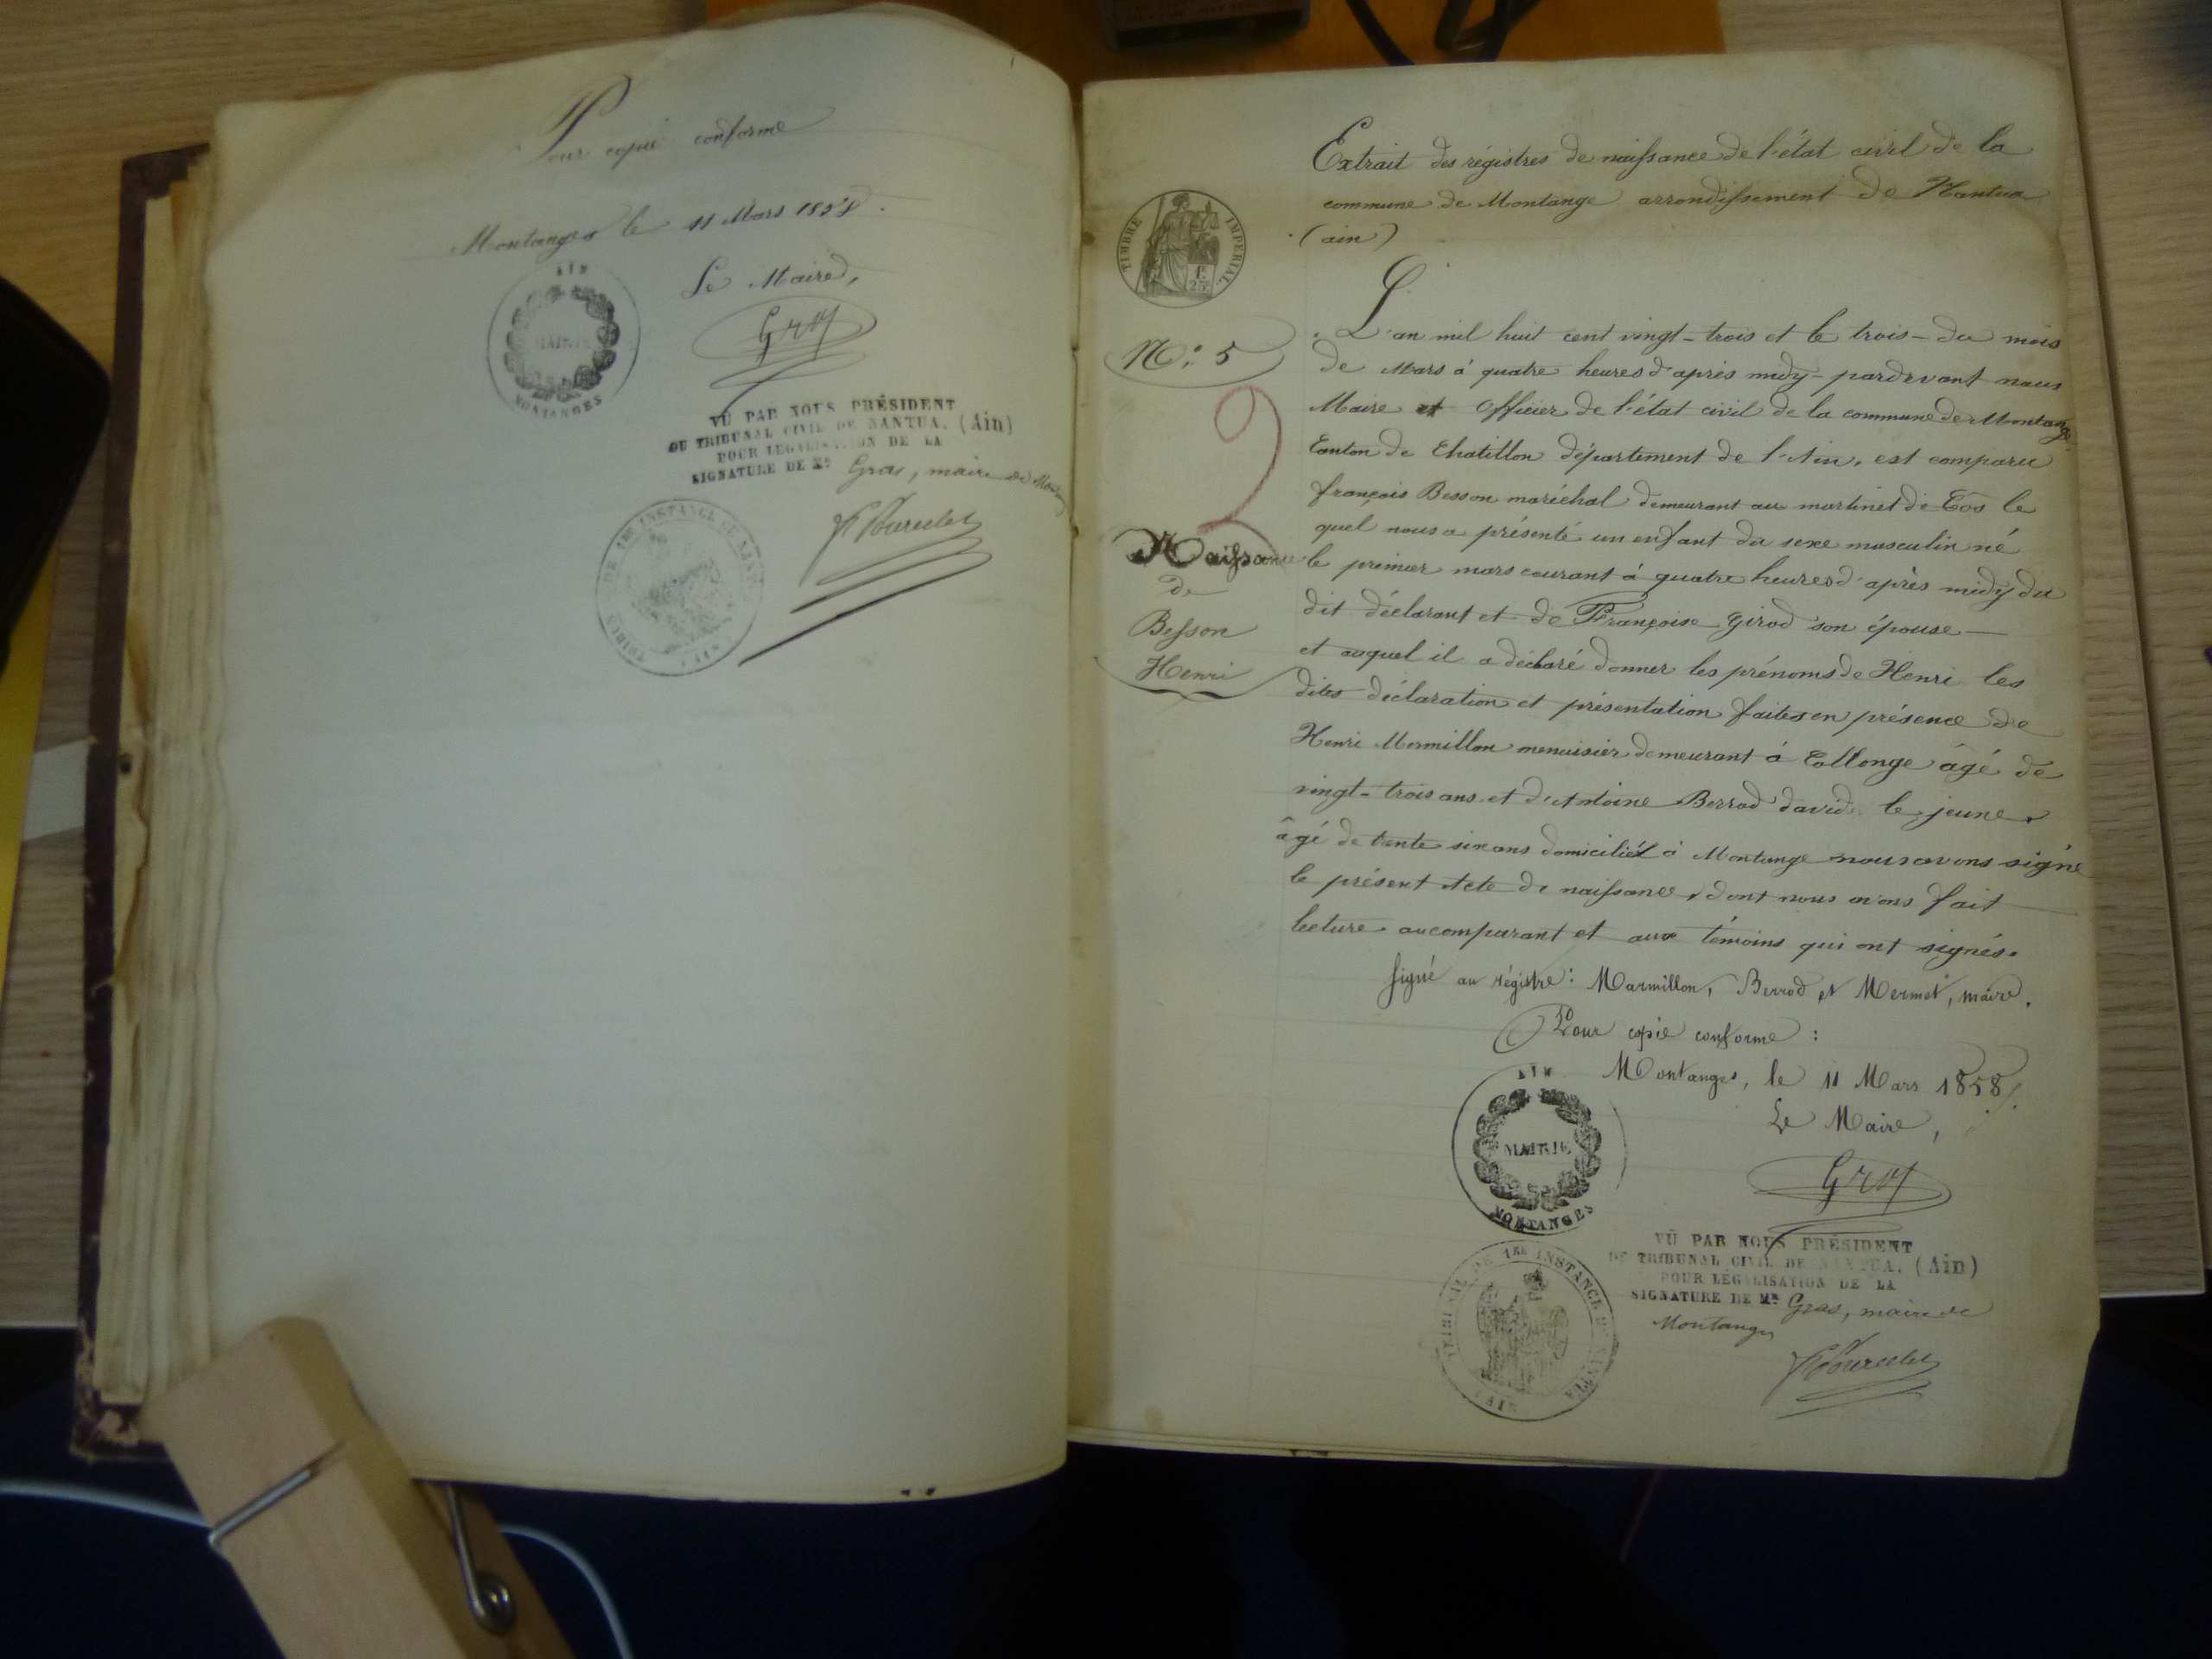 Pour copie conforme
Montanges le 11 Mars 1858.
Le Maire,
AIN
MAIRIE
MONTANGES
Gros
VU PAR NOUS PRÉSIDENT
DU TRIBUNAL CIVIL DE NANTUA. (Ain)
POUR LÉGALISATION DE LA
SIGNATURE DE Mr Gras, maire de
DE 1RE INSTANCE
AIN
Extrait des régistres de naissance de l'état civil de la
commune de Montange arrondissement de Nantua
(ain)
TIMBRE IMPERIAL
1F
25C
N° 5
2
Naissance
de
Besson
Henri
L'an mil huit cent vingt-trois et le trois - du mois
de Mars à quatre heures d'après midy - pardevant nous
Maire et Officier de l'état civil de la commune de Montange
Canton de Chatillon département de l'Ain, est comparu
françois Besson maréchal demeurant au martinet de Cos le
quel nous a présenté un enfant du sexe masculin né
le premier mars courant à quatre heures d'après midy du
dit déclarant et de Françoise Girod son épouse —
et auquel il a déclaré donner les prénoms de Henri les
dites déclaration et présentation faites en présence de
Henri Mermillon menuisier demeurant à Collonge âgé de
vingt-trois ans et d'Antoine Berrod david le jeune
âgé de trente six ans domiciliés à Montange nous avons signé
le présent Acte de naissance, dont nous avons fait
lecture au comparant et aux témoins qui ont signés.
Signé au régistre: Marmillon, Berrod et Mermet, maire.
Pour copie conforme :
Montanges, le 11 Mars 1858.
Le Maire,
AIN
MAIRIE
MONTANGES
Gros
VU PAR NOUS PRÉSIDENT
DU TRIBUNAL CIVIL DE NANTUA. (Ain)
POUR LÉGALISATION DE LA
SIGNATURE DE Mr Gras, maire de
Montanges
TRIBUNAL DE 1RE INSTANCE DE NANTUA
AIN